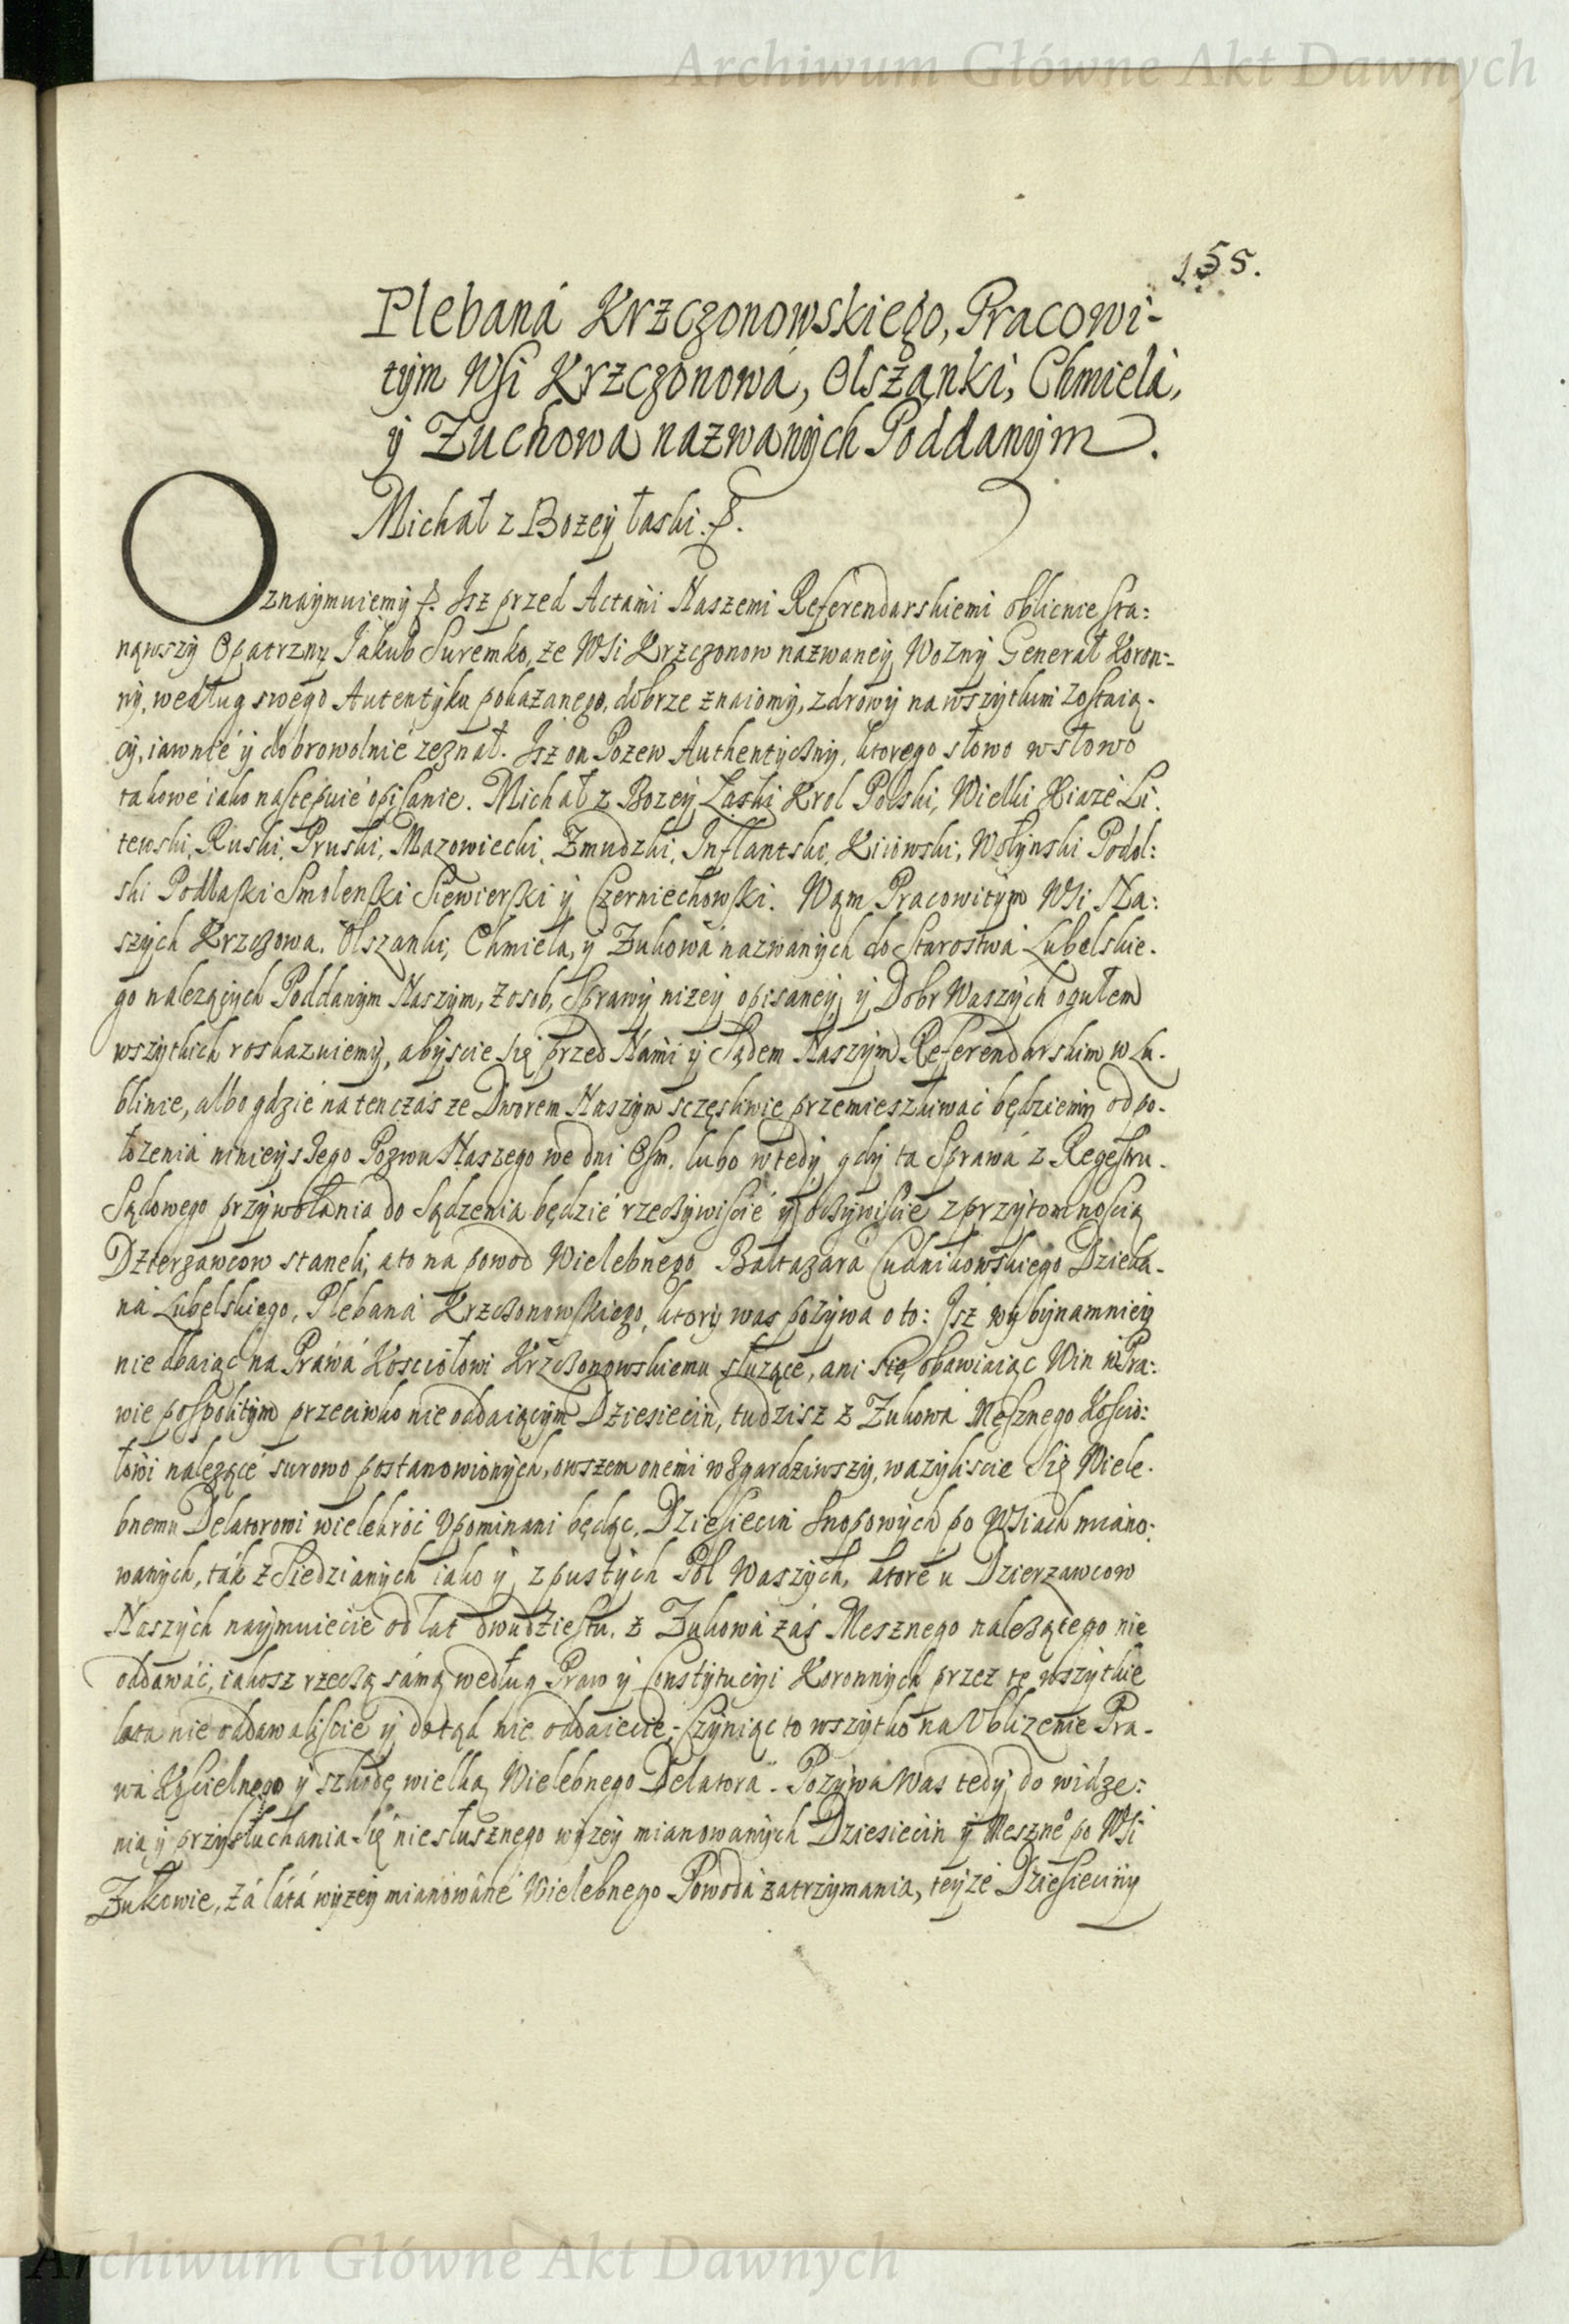 Archiwum Główne Akt Dawnych
155.
Plebaná Krzczonowskiego, Pracowi-
tÿm Wsi Krzczonowá, Olszanki, Chmielá,
ÿ Zuchowa nazwanÿch Poddanÿm.
Michał z Bozeÿ łaski. p.
Oznaÿmuiemÿ p. Jsz przed Actami Naszemi Referendarskiemi oblicnie sta:
nąwszÿ Opatrznÿ Jakub Suremko, ze Wsi Krzczonow nazwaneÿ, Woznÿ Generał Koron:
nÿ, według swego Autentÿku pokazanego, dobrze znaiomÿ, zdrowÿ na wszÿtkim zostaią-
cÿ, iawnie ÿ dobrowolnie zeznał. Jsz on Pozew Authentÿcznÿ, ktorego słowo w słowo
takowe iako nastepuie opisanie. Michał z Bozeÿ Łaski Krol Polski, Wielki Xiaze Li
tewski, Ruski, Pruski, Mazowiecki, Zmudzki, Inflantski, Kiiowski, Wołÿnski Podol:
ski Podlaski Smolenski Siewierski ÿ Czerniechowski. Wąm Pracowitÿm Wsi Na:
szÿch Krzczowa. Olszanki, Chmiela, ÿ Zukowá nazwanÿch do Starostwá Lubelskie-
go nalezącÿch Poddanÿm Naszÿm, z osob, Sprawÿ nizeÿ opisaneÿ, ÿ Dobr Waszÿch ogułem
wszÿtkich roskazuiemÿ, abÿscie się przed Nami ÿ Sądem Naszÿm Referendarskim w Lu-
blinie, albo gdzie na ten czás ze Dworem Naszÿm sczęsliwie przemieszkiwać będziemÿ od po-
łozenia ninieÿszego Pozwu Naszego we dni Osm. lubo wtedÿ, gdÿ ta Sprawá z Regestru-
Sądowego przÿwołania do Sądzenia będzie rzeczÿwiscie ÿ oczÿwiscie z przÿtomnoscią
Dzierzawcow staneli, a to na powod Wielebnego Baltazara Cudnikowskiego Dzieka-
ná Lubelskiego, Plebaná Krzczonowskiego, ktorÿ was pozÿwa o to: Jsz wÿ bÿnamnieÿ
nie dbaiąc na Práwá Kosciołowi Krzczonowskiemu słuzące, ani się obawiaiąc Win w Pra:
wie pospolitÿm przeciwko nie oddaiącÿm Dziesiecin, tudzisz z Zukowá Męsznego Koscio:
łowi nalezące surowo postanowionÿch, owszem onemi wzgardziwszÿ, wazÿliscie się Wiele-
bnemu Delatorowi wielekroć Upominani będąc, Dziesiecin Snopowÿch po Wsiach miano:
wanÿch, ták z Siedzianÿch iako ÿ z pustÿch Pol Waszÿch, ktore u Dzierzawcow
Naszÿch naÿmuiecie od lat dwudziestu, z Zukowá zás Mesznego nalezącego nie
oddawáć, iakosz rzeczą sámą według Praw ÿ Constÿtucÿi Koronnÿch przez te wszÿtkie
lata nie oddawaliscie ÿ dotąd nie oddaiecie; Czÿniąc to wszÿtko na Ublizenie Pra-
wá Koscielnego ÿ szkodę wielką Wielebnego Delatora. Pozÿwa Was tedÿ do widze:
nia ÿ przÿsłuchania się niesłusznego wÿzeÿ mianowanÿch Dziesiecin ÿ Meszneo po Wsi
Zukowie, zá látá wÿzeÿ mianowáne Wielebnego Powodá zatrzÿmania, teÿze Dziesiecinÿ
Archiwum Główne Akt Dawnych